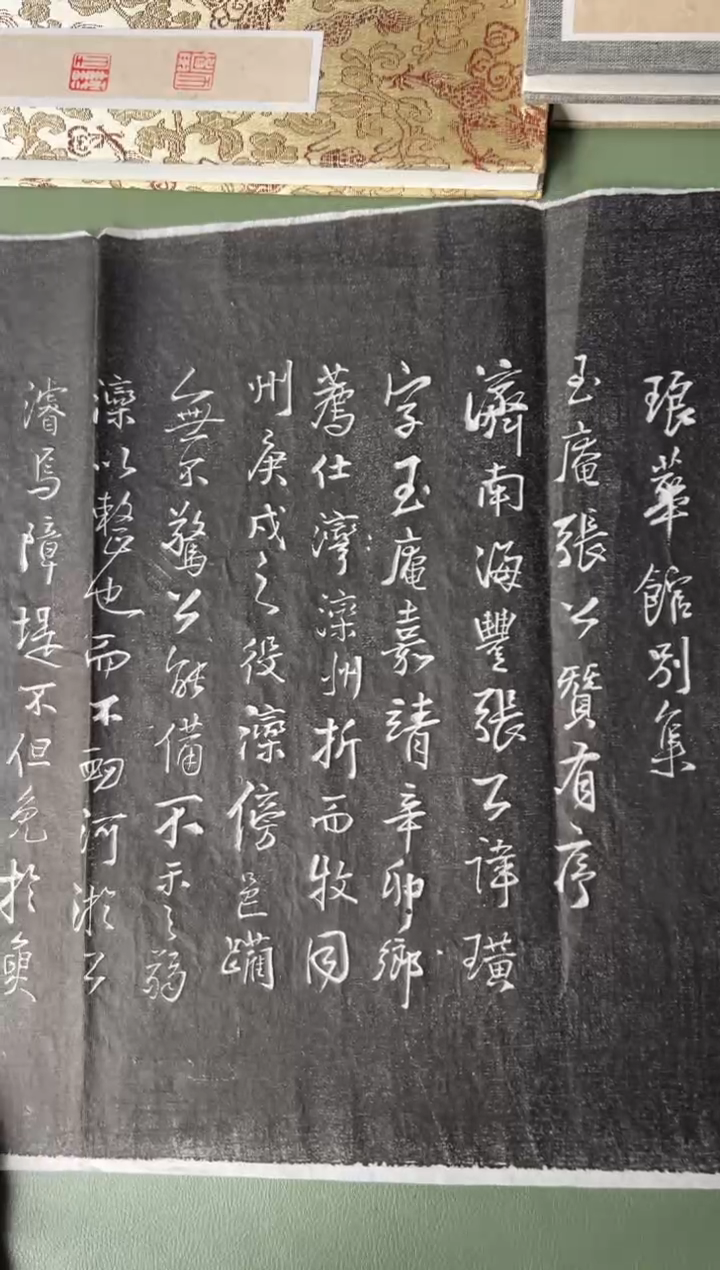 琅華館別集
玉庵張公贊有序
濟南海豐張公諱璜
字玉庵嘉靖辛卯鄉
薦仕灤州折而牧同
州庚戌之役灤傍邑躪
人無不驚公能備不示之弱
灤以整也而不河淤公
濬焉障堤不但免於魚